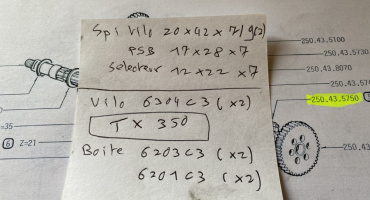 Spi Vilo 20x42x7/9(2)
PSB 17x28x7
Selecteur 12x22x7
Vilo 6304C3 (x2)
TX 350
Boite 6203C3 (x2)
6201C3 (x2)
250.43.5100
250.43.5730
250.43.8070
250.43.5
250.43.5750
250.43
=35
6 Z=21